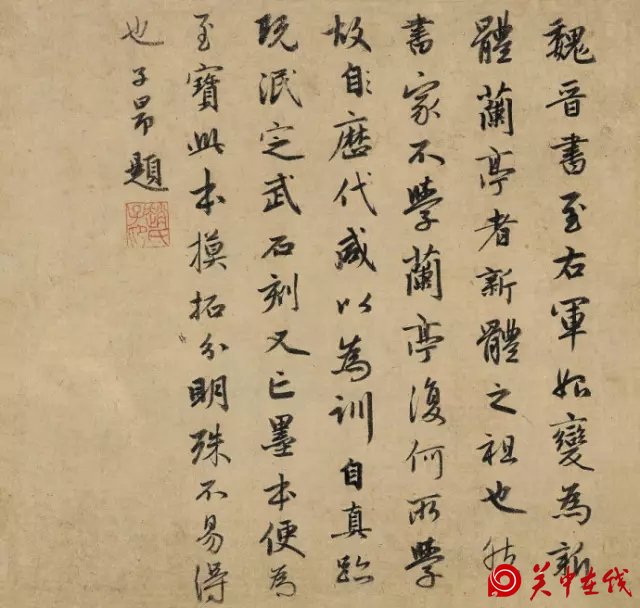 魏晋書至右軍始變為新
體蘭亭者新體之祖也然
書家不學蘭亭復何所學
故自歷代咸以為訓自真跡
既泯定武石刻又亡墨本便為
至寶此本摸拓分明殊不易得
也子昂題
趙氏子昂
关中在线